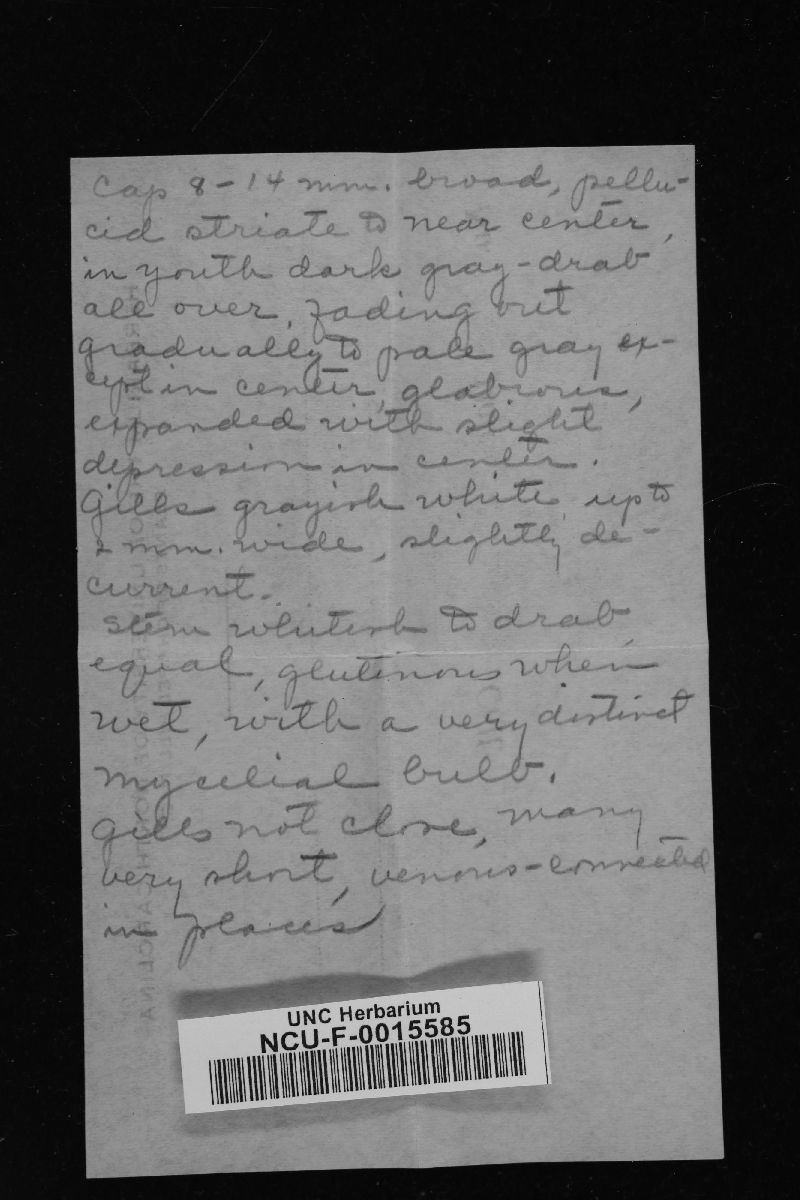 Cap 8-14 mm. broad, pellu-
cid striate to near center,
in youth dark gray-drab
all over, fading out
gradually to pale gray ex-
cept in center, glabrous,
expanded with slight
depression in center.
Gills grayish white, up to
2 mm. wide, slightly de-
current.
Stem whitish to drab,
equal, glutinous when
wet, with a very distinct
mycelial bulb.
Gills not close, many
very short, venous-connected
in places
UNC Herbarium
NCU-F-0015585